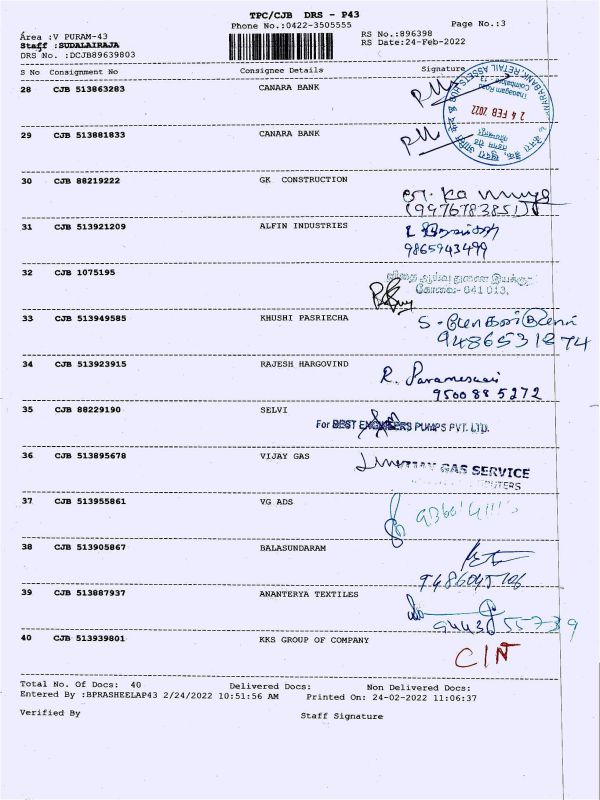 TPC/CJB DRS - P43
Phone No.:0422-3505555
Page No.:3
Area :V PURAM-43
RS No.:896398
Staff :SUDALAIRAJA
RS Date:24-Feb-2022
DRS No. :DCJB89639803
S No Consignment No Consignee Details Signature
28 CJB 513863283 CANARA BANK
24 FEB 2022
29 CJB 513881833 CANARA BANK
30 CJB 88219222 GK CONSTRUCTION
(9976783851)
31 CJB 513921209 ALFIN INDUSTRIES
9865943499
32 CJB 1075195
விதை ஆய்வு துணை இயக்குநர்
கோவை- 641 013.
33 CJB 513949585 KHUSHI PASRIECHA
9486531274
34 CJB 513923915 RAJESH HARGOVIND
R. Parameswari
9500885272
35 CJB 88229190 SELVI
For BEST ENGINEERS PUMPS PVT. LTD.
36 CJB 513895678 VIJAY GAS
GAS SERVICE
37 CJB 513955861 VG ADS
38 CJB 513905867 BALASUNDARAM
39 CJB 513887937 ANANTERYA TEXTILES
9443355739
40 CJB 513939801 KKS GROUP OF COMPANY
C/N
Total No. Of Docs: 40 Delivered Docs: Non Delivered Docs:
Entered By :BPRASHEELAP43 2/24/2022 10:51:56 AM Printed On: 24-02-2022 11:06:37
Verified By Staff Signature